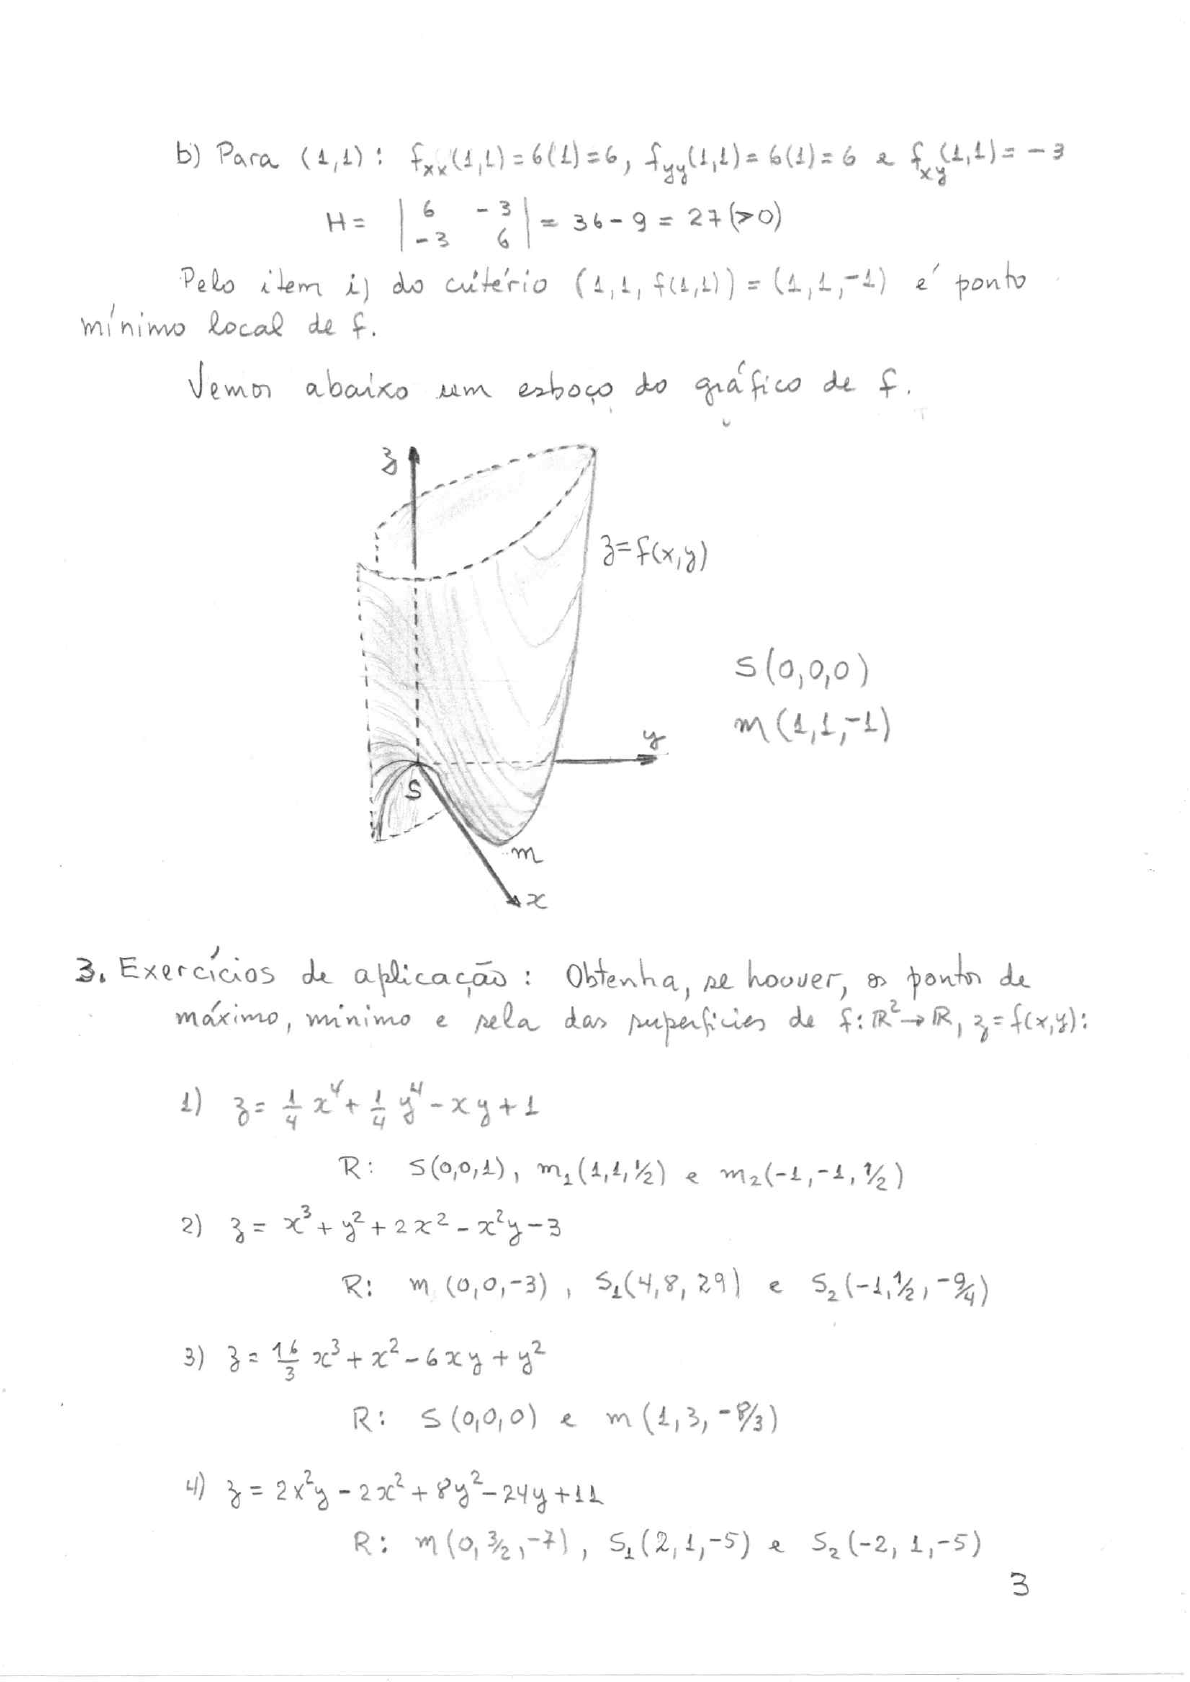 b) Para (1,1): fxx(1,1)=6(1)=6, fyy(1,1)=6(1)=6 e fxy(1,1)=-3
H= | 6 -3 | = 36-9 = 27(>0)
| -3 6 |
Pelo item i) do critério (1,1, f(1,1)) = (1,1,-1) é ponto
mínimo local de f.
Vemos abaixo um esboço do gráfico de f.
z
z=f(x,y)
S(0,0,0)
m(1,1,-1)
y
S
m
x
3. Exercícios de aplicação: Obtenha, se houver, os pontos de
máximo, mínimo e sela das superfícies de f: ℝ²→ℝ, z=f(x,y):
1) z = 1/4 x⁴ + 1/4 y⁴ - xy + 1
R: S(0,0,1), m₁(1,1,1/2) e m₂(-1,-1,1/2)
2) z = x³ + y² + 2x² - x²y - 3
R: m(0,0,-3), S₁(4,8,29) e S₂(-1,1/2,-9/4)
3) z = 16/3 x³ + x² - 6xy + y²
R: S(0,0,0) e m(1,3,-8/3)
4) z = 2x²y - 2x² + 8y² - 24y + 11
R: m(0,3/2,-7), S₁(2,1,-5) e S₂(-2,1,-5)
3